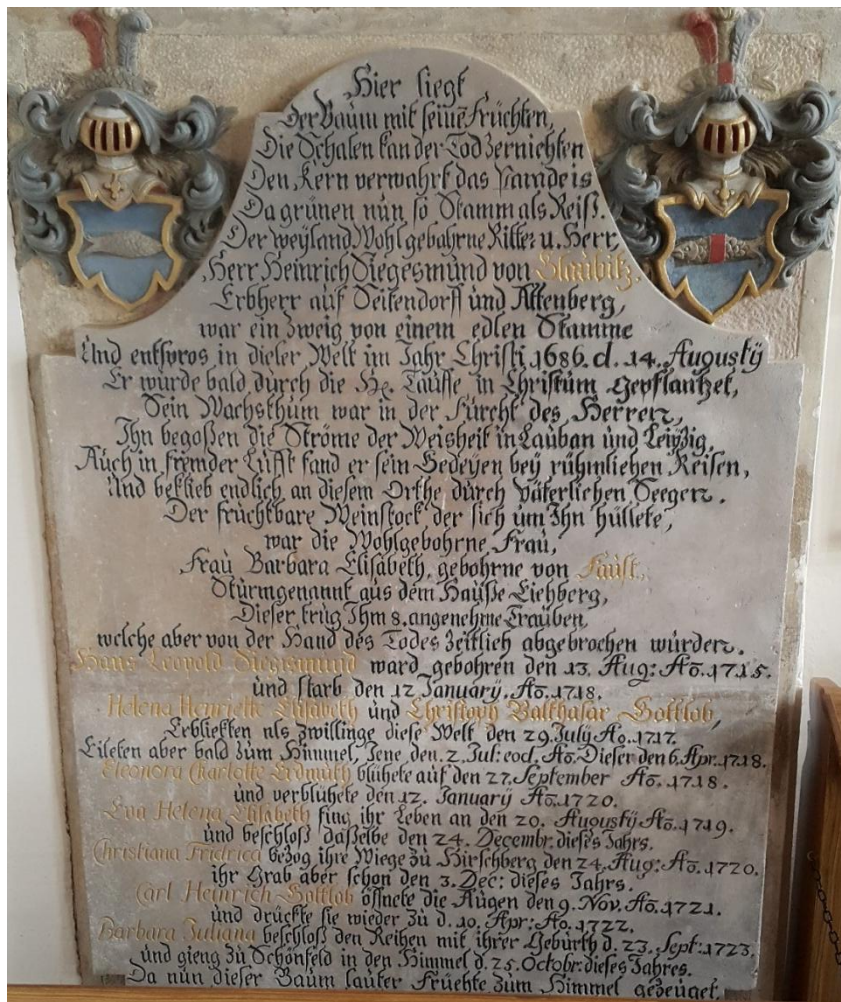 Hier liegt
Der Baum mit seinē Früchten,
Die Schalen kan der Tod zernichten
Den Kern verwahrt das Paradeis
Da grünen nun so Stamm als Reiß.
Der weyland Wohlgebohrne Ritter u. Herr,
Herr Heinrich Siegesmund von Glaubitz.
Erbherr auf Seitendorff und Altenberg,
war ein Zweig von einem edlen Stamme
Und entspros in dieser Welt im Jahr Christi, 1686. d. 14. Augustÿ
Er wurde bald durch die He. Tauffe in Christum gepflantzet,
Sein Wachsthum war in der Furcht des Herren,
Ihn begoßen die Ströme der Weisheit in Lauban und Leipzig,
Auch in fremder Lufft fand er sein Gedeyen bey rühmlichen Reisen,
Und beklieb endlich an diesem Orthe durch väterlichen Seegen.
Der fruchtbare Weinstock der sich um Ihn hüllete,
war die Wohlgebohrne Frau,
Frau Barbara Elisabeth, gebohrne von Faust,
Sturm genannt aus dem Hauße Eichberg,
Dieser trug Ihm 8. angenehme Trauben,
welche aber von der Hand des Todes zeitlich abgebrochen wurden.
Hans Leopold Siegismund ward gebohren den 13. Aug: Ao. 1715.
und starb den 12. Januarÿ. Ao. 1718.
Helena Henriette Elisabeth und Christoph Balthasar Gottlob,
Erblickten als Zwillinge diese Welt den 29. July Ao. 1717.
Eileten aber bald zum Himmel, Jene den. 2. Jul: eod. Ao. Dieser den 6. Apr. 1718.
Eleonora Charlotte Erdmuth blühete auf den 27. September Ao. 1718.
und verblühete den 12. Januarÿ Ao. 1720.
Eva Helena Elisabeth fing ihr Leben an den 20. Augustÿ Ao. 1719.
und beschloß daßelbe den 24. Decembr. dieses Jahrs.
Christiana Fridrica bezog ihre Wiege zu Hirschberg den 24. Aug: Ao. 1720.
ihr Grab aber schon den 3. Dec: dieses Jahrs.
Carl Heinrich Gottlob öffnete die Augen den 9. Nov. Ao. 1721.
und drückte sie wieder zu d. 10. Apr: Ao. 1722.
Barbara Juliana beschloß den Reihen mit ihrer Geburth d. 23. Sept: 1723.
und gieng zu Schönfeld in den Himmel d. 25. Octobr. dieses Jahres.
Da nun dieser Baum lauter Früchte zum Himmel gezeuget,